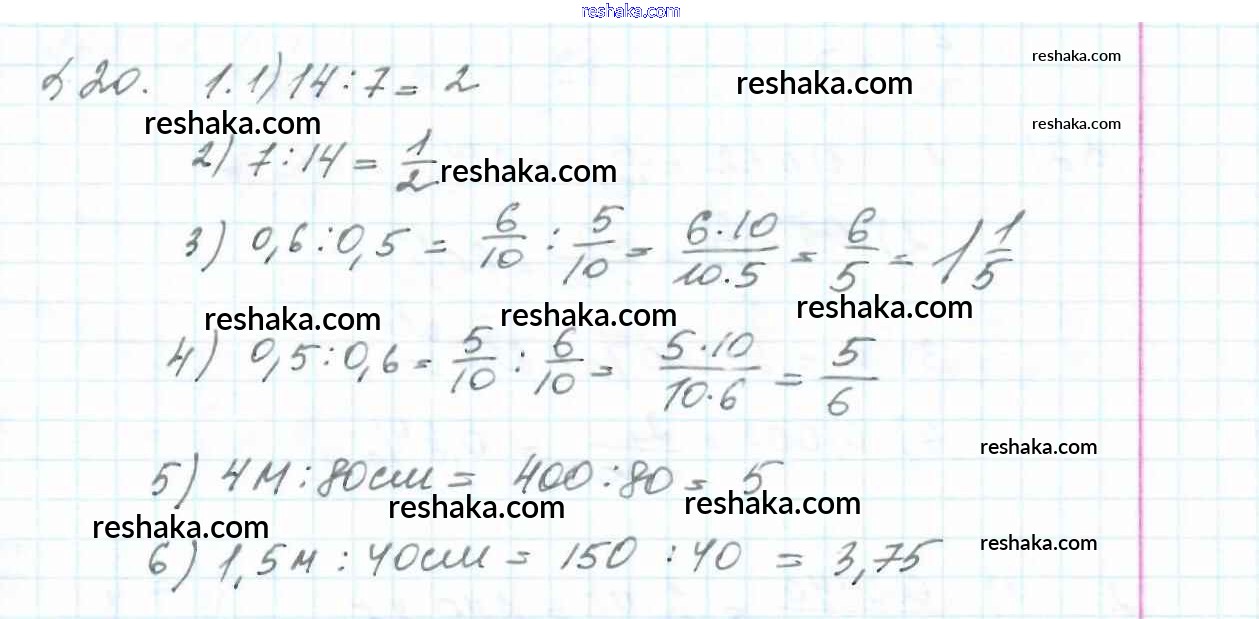 reshaka.com
§ 20. 1. 1) 14 : 7 = 2 reshaka.com reshaka.com
reshaka.com reshaka.com
2) 7 : 14 = 1/2 reshaka.com
3) 0,6 : 0,5 = 6/10 : 5/10 = 6·10/10·5 = 6/5 = 1 1/5
reshaka.com reshaka.com reshaka.com
4) 0,5 : 0,6 = 5/10 : 6/10 = 5·10/10·6 = 5/6
reshaka.com
5) 4м : 80см = 400 : 80 = 5
reshaka.com reshaka.com reshaka.com
6) 1,5м : 40см = 150 : 40 = 3,75 reshaka.com